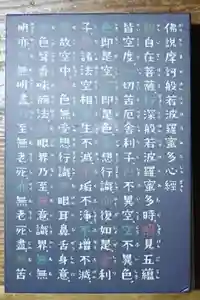 佛說摩訶般若波羅蜜多心經
觀自在菩薩行深般若波羅蜜多時照見五蘊
皆空度一切苦厄舍利子色不異空空不異色
色即是空空即是色受想行識亦復如是舍利
子是諸法空相不生不滅不垢不淨不增不減
是故空中無色無受想行識無眼耳鼻舌身意
無色聲香味觸法無眼界乃至無意識界無無
明亦無無明盡乃至無老死亦無老死盡無苦